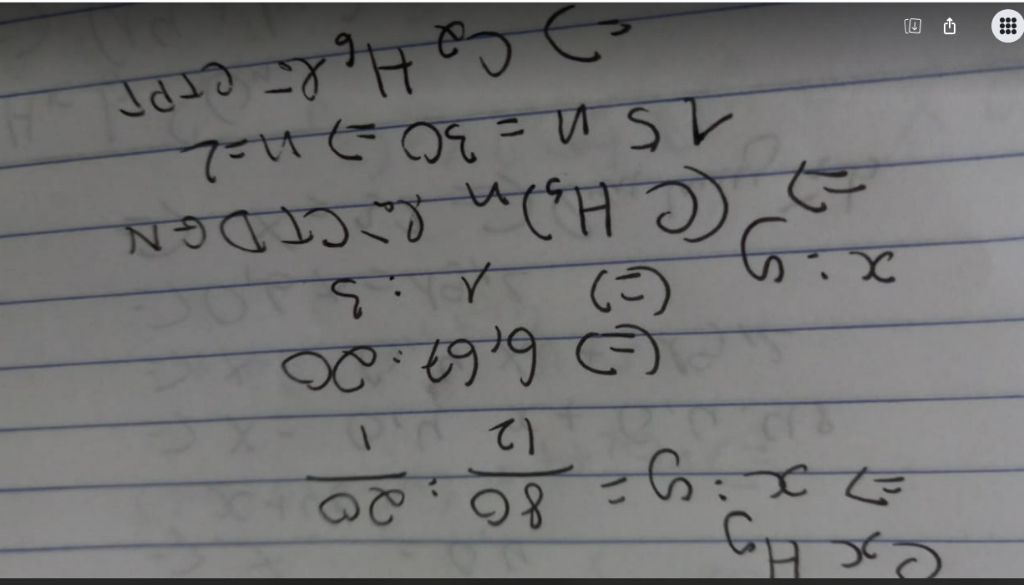 CxHy
=> x : y = 80/12 : 20/1
<=> 6,67 : 20
x : y <=> 1 : 3
=> (CH₃)n là CTDGN
15n = 30 => n=2
=> C₂H₆ là CTPT